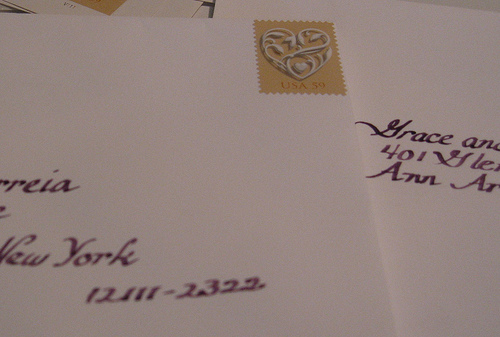 USA 59
rreia
New York
12111-2322
Grace and
401 Gle
Ann Ar